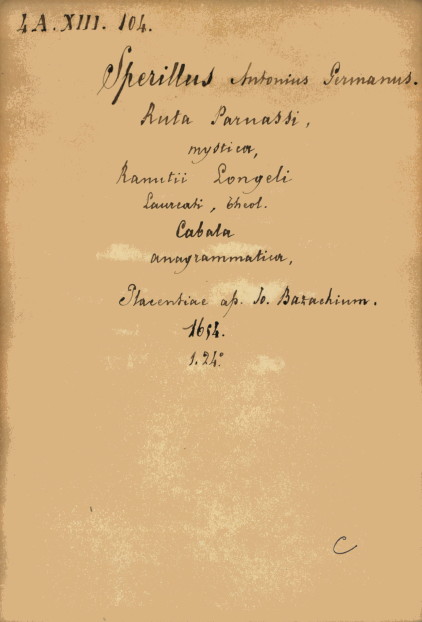 4A.XIII. 104.
Sperillus Antonius Germanus.
Ruta Parnassi,
mystica,
Ranutii Longeli
Laureati, theol.
Cabala
anagrammatica,
Placentiae ap. Io. Bazachium.
1654.
1. 24°
C